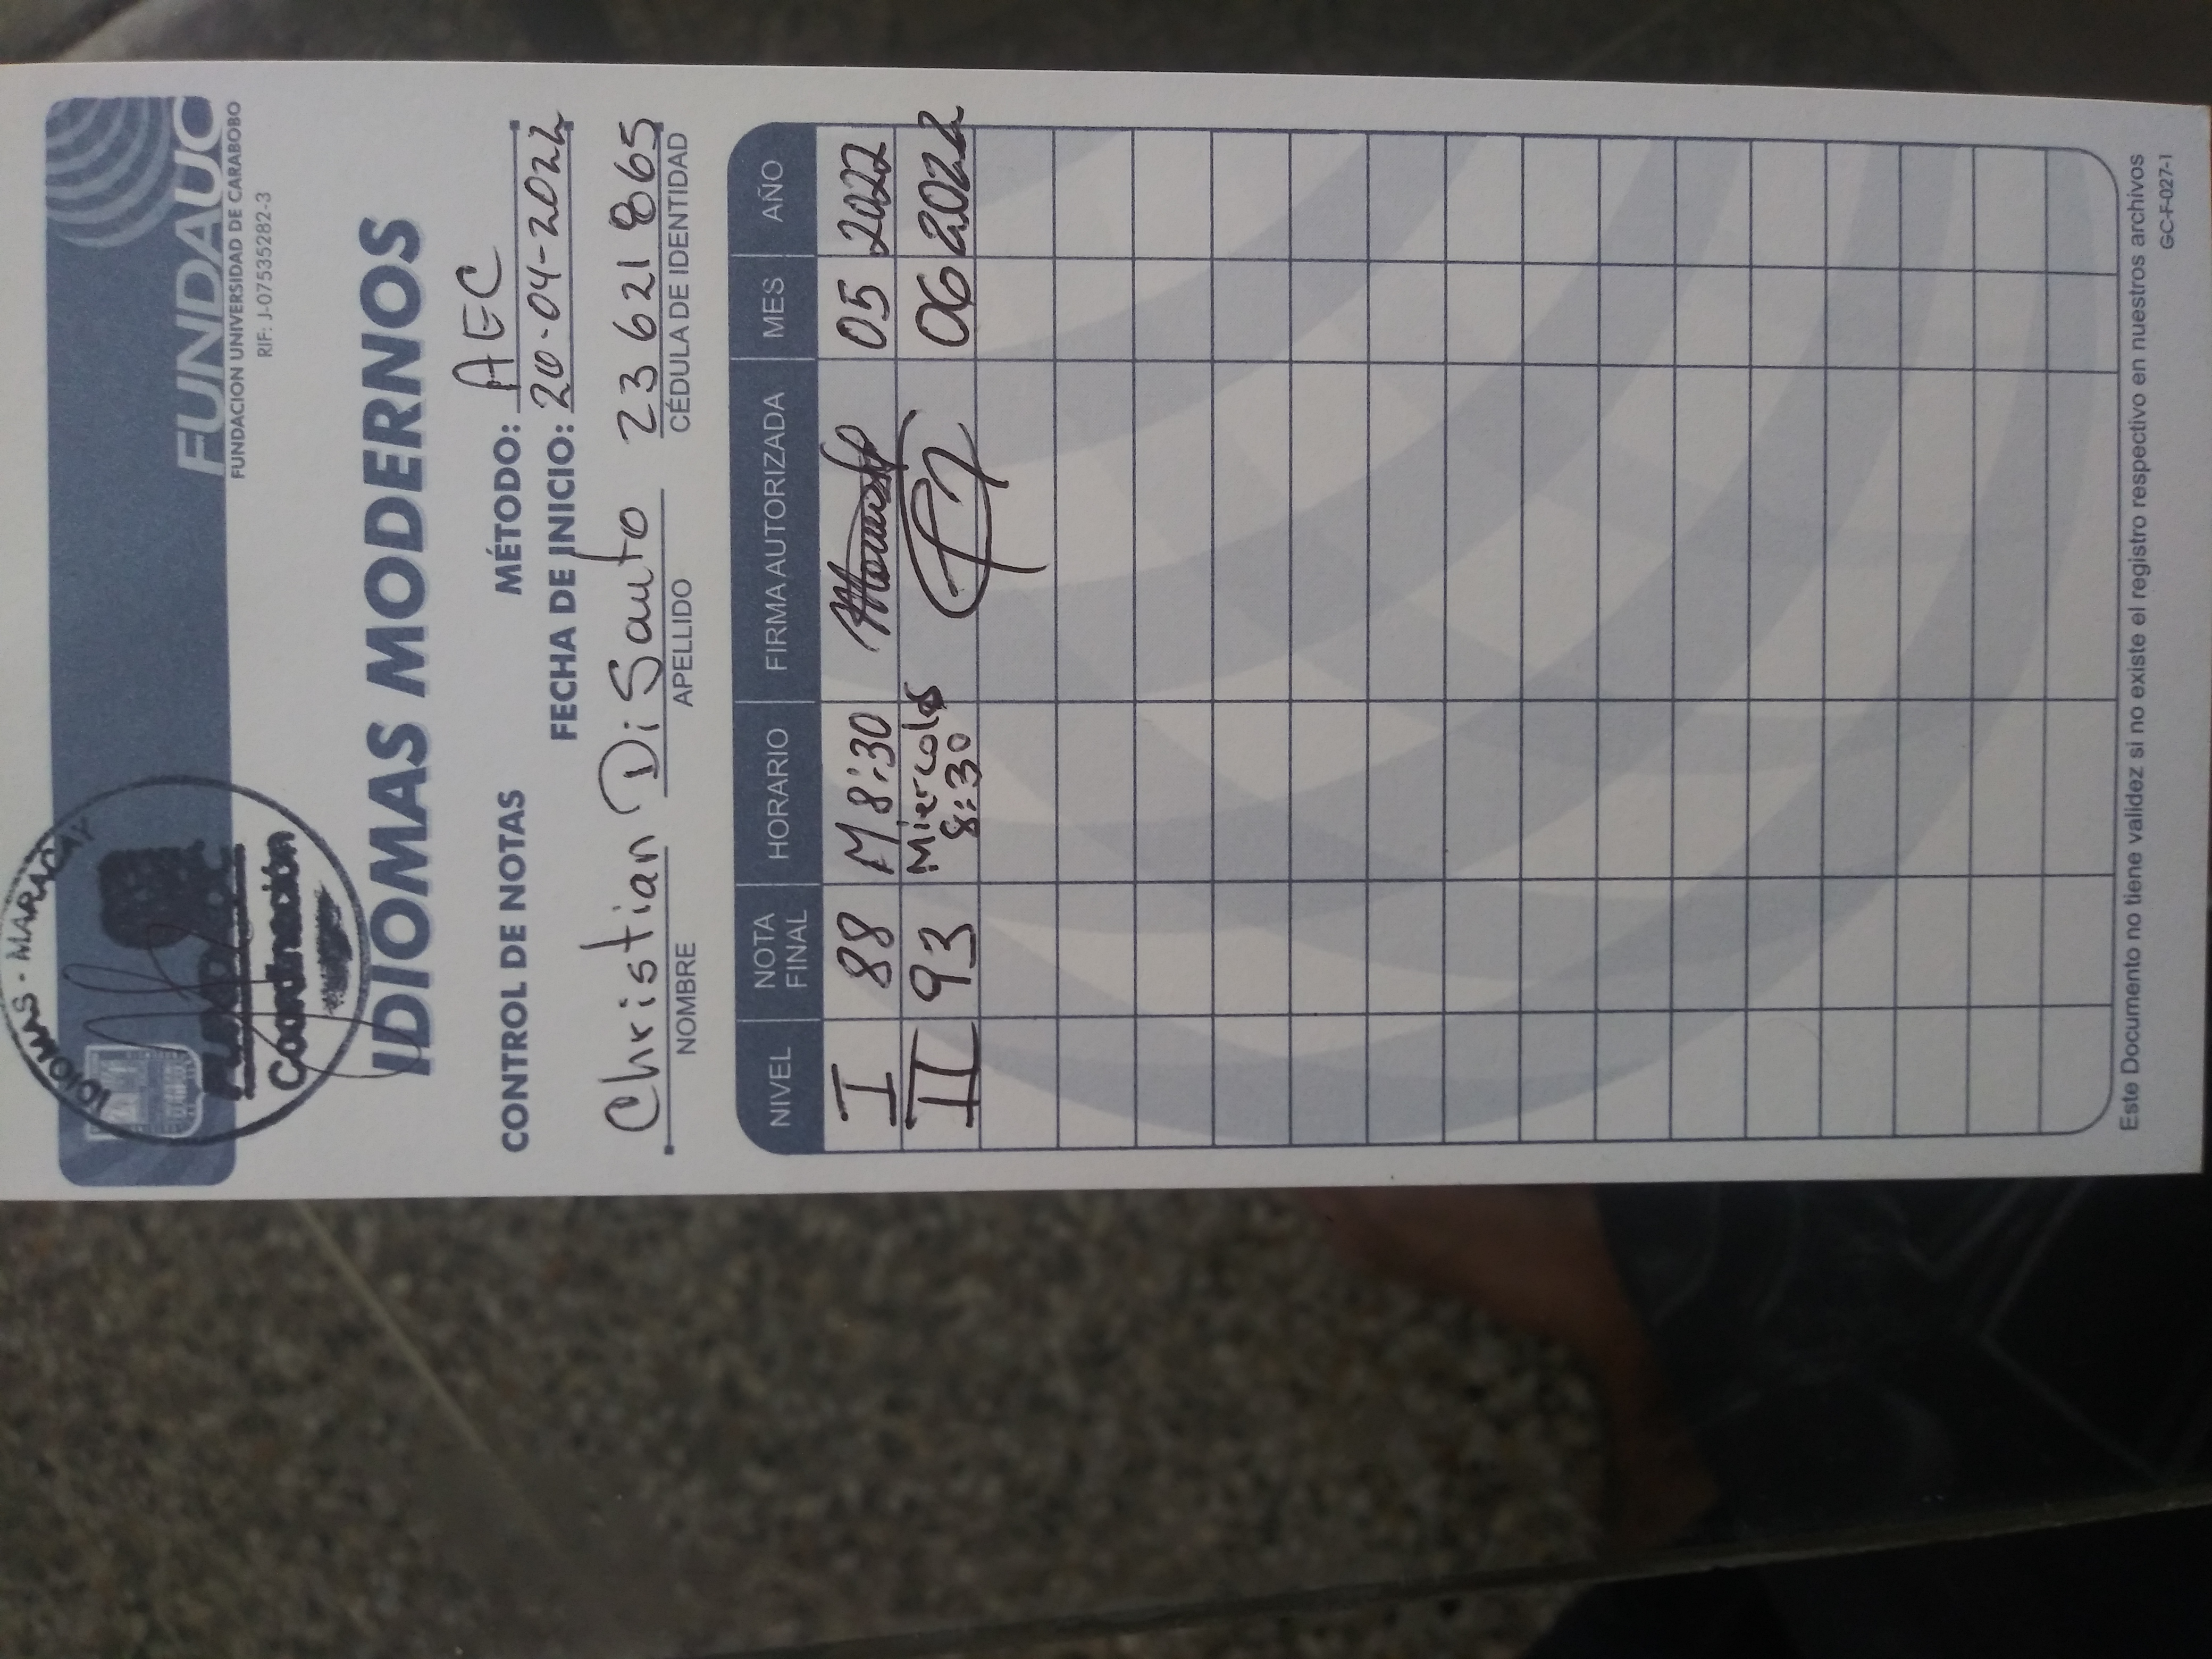 IDIOMAS - MARACAY
FUNDAUC
Coordinación
FUNDAUC
FUNDACION UNIVERSIDAD DE CARABOBO
RIF: J-07535282-3
IDIOMAS MODERNOS
CONTROL DE NOTAS MÉTODO: AEC
FECHA DE INICIO: 20-04-2022
Christian Di Santo 23 621 865
NOMBRE APELLIDO CÉDULA DE IDENTIDAD
NIVEL NOTA FINAL HORARIO FIRMA AUTORIZADA MES AÑO
I 88 M 8:30 05 2022
II 93 Miercoles 8:30 06 2022
Este Documento no tiene validez si no existe el registro respectivo en nuestros archivos
GC-F-027-1